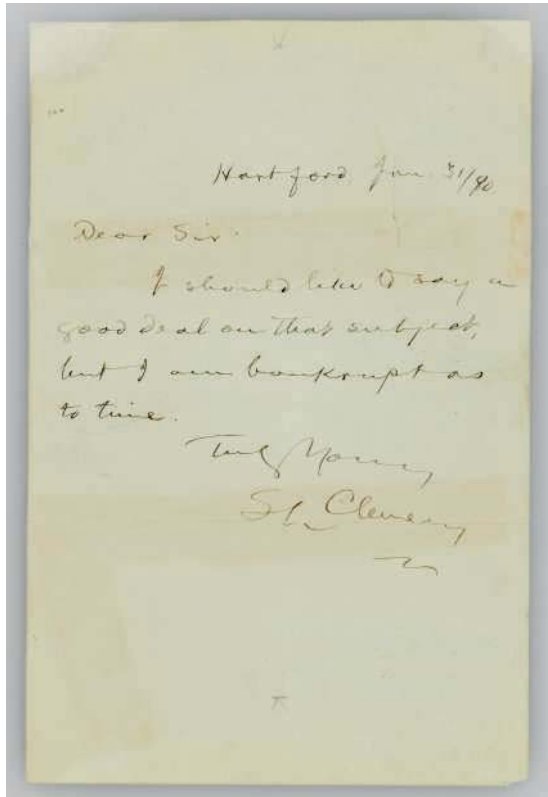 Hartford Jan. 31/90.
Dear Sir:
I should like to say a
good deal on that subject,
but I am bankrupt as
to time.
Truly Yours
SL Clemens